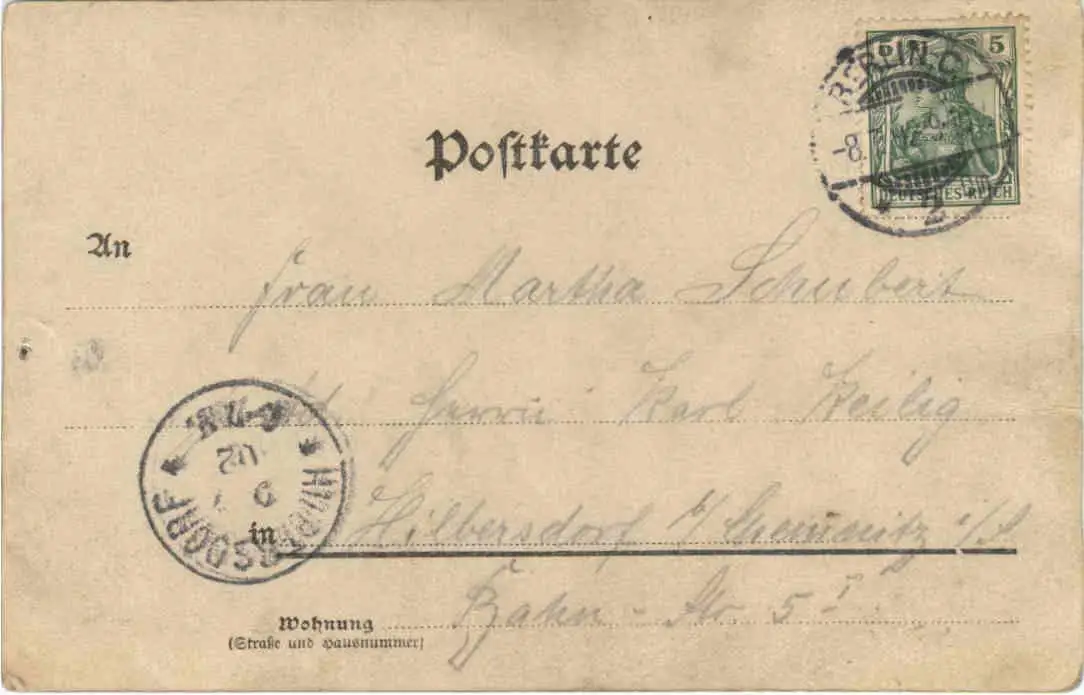 5 5
BERLIN C
-8. 02
* 2
DEUTSCHES REICH
Postkarte
An
Frau Martha Schubert
Herrn Karl Keilig
in Hilbersdorf b/ Chemnitz i/S.
Bahn-Str 5 I
HILBERSDORF
9 7
02
Wohnung
(Straße und Hausnummer)